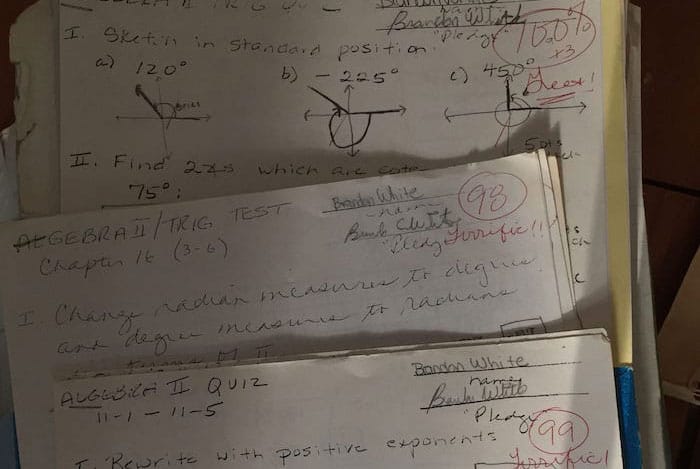 TRIG QU
Brandon White
name
"Pledge"
100%
+3
Great!
I. Sketch in standard position.
a) 120° b) -225° c) 450°
5 pts
II. Find 2 ∠s which are cote
75°:
ALGEBRA II/TRIG TEST
Brandon White
name
98
Terrific!!
Chapter 16 (3-6)
"Pledg
I. Change radian measures to degree
and degree measures to radians
ALGEBRA II QUIZ
Brandon White
name
Brandon White
"Pledge
11-1 - 11-5
99
Terrific!
I. Rewrite with positive exponents